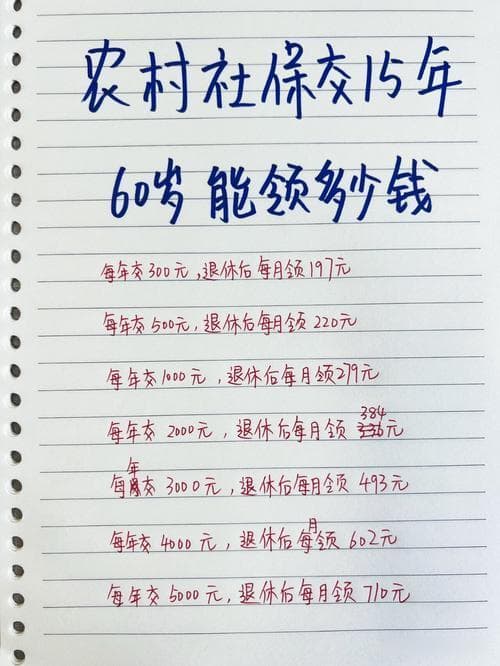 农村社保交15年
60岁能领多少钱
每年交300元,退休后每月领197元
每年交500元,退休后每月领220元
每年交1000元,退休后每月领279元
每年交2000元,退休后每月领384元
每年交3000元,退休后每月领493元
每年交4000元,退休后每月领602元
每年交5000元,退休后每月领710元